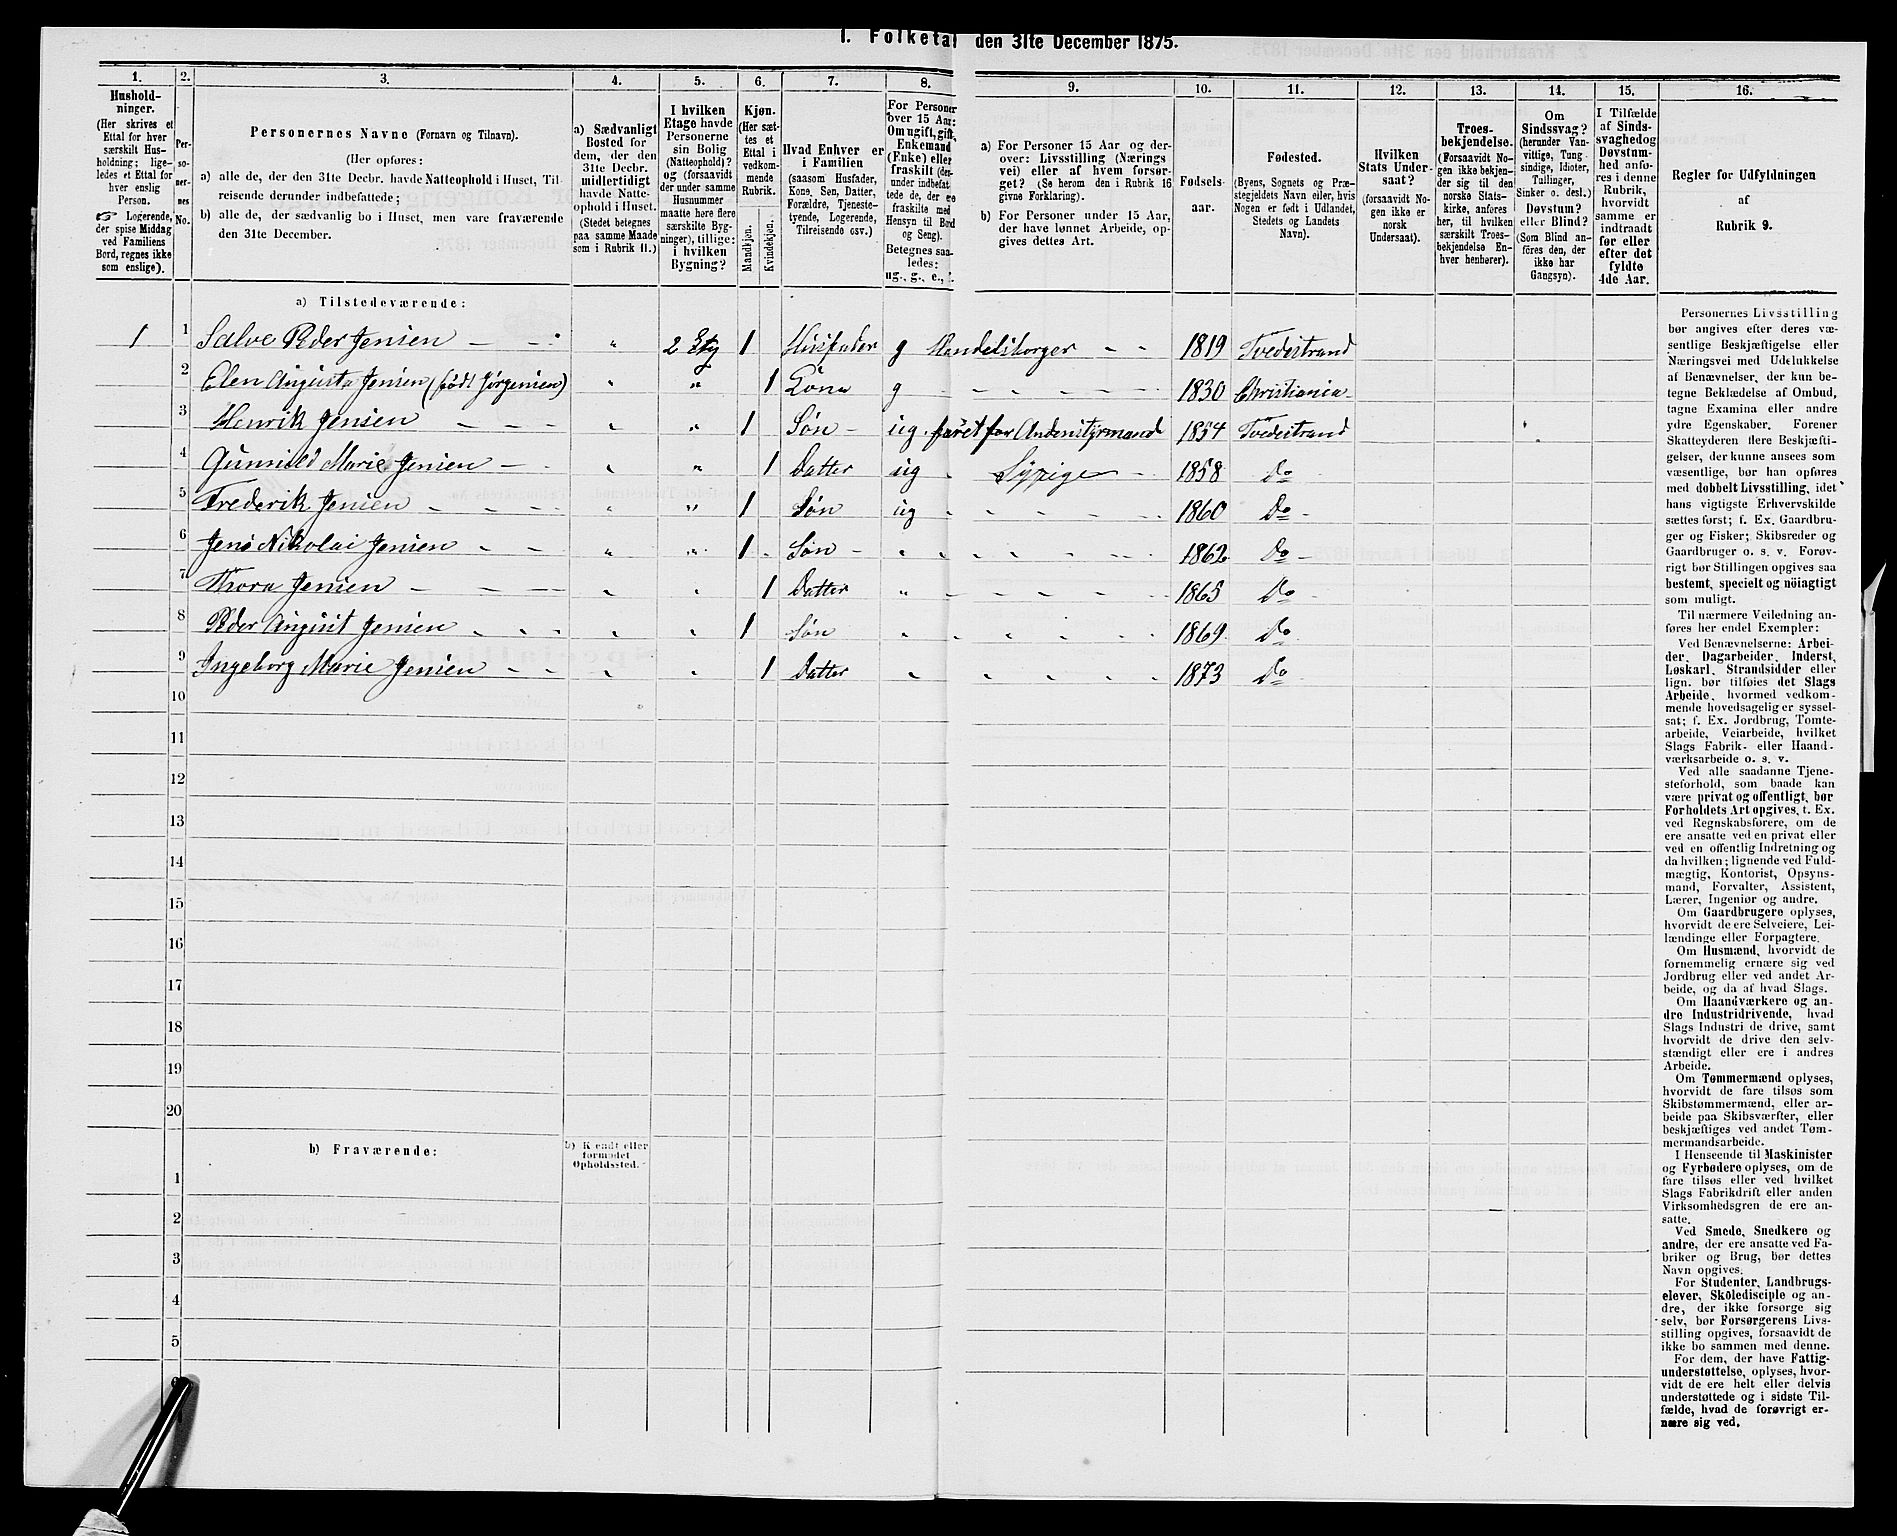 I. Folketal den 31te December 1875.
1.
2.
3.
4.
5.
6.
7.
8.
9.
10.
11.
12.
13.
14.
15.
16.
Hushold-
ninger.
(Her skrives et
Ettal for hver
særskilt Hus-
holdning; lige-
ledes et Ettal for
hver enslig
Person.
☞ Logerende,
der spise Middag
ved Familiens
Bord, regnes ikke
som enslige).
Per-
so-
ner-
nes
No.
Personernes Navne (Fornavn og Tilnavn).
(Her opføres:
a) alle de, der den 31te Decbr. havde Natteophold i Huset, Til-
reisende derunder indbefattede;
b) alle de, der sædvanlig bo i Huset, men vare fraværende
den 31te December.
a) Sædvanligt
Bosted for
dem, der den
31te Decbr.
midlertidigt
havde Natte-
ophold i Huset.
(Stedet betegnes
paa samme Maade
som i Rubrik 11.)
I hvilken
Etage havde
Personerne
sin Bolig
(Natteophold)?
og (forsaavidt
der under samme
Husnummer
maatte høre flere
særskilte Byg-
ninger), tillige:
i hvilken
Bygning?
Kjøn.
(Her sæt-
tes et
Ettal i
vedkom-
mende
Rubrik.
Mandkjøn.
Kvindekjøn.
Hvad Enhver er
i Familien
(saasom Husfader,
Kone, Søn, Datter,
Forældre, Tjeneste-
tyende, Logerende,
Tilreisende osv.)
For Personer
over 15 Aar:
Om ugift, gift,
Enkemand
(Enke) eller
fraskilt (der-
under indbefat-
tede de, der ere
fraskilte med
Hensyn til Bord
og Seng).
Betegnes saa-
ledes:
ug., g., e., f.
a) For Personer 15 Aar og der-
over: Livsstilling (Nærings
vei) eller af hvem forsør-
get? (Se herom den i Rubrik 16
givne Forklaring).
b) For Personer under 15 Aar,
der have lønnet Arbeide, op-
gives dettes Art.
Fødsels-
aar.
Fødested.
(Byens, Sognets og Præ-
stegjeldets Navn eller, hvis
Nogen er født i Udlandet,
Stedets og Landets
Navn).
Hvilken
Stats Under-
saat?
(forsaavidt No-
gen ikke er
norsk
Undersaat).
Troes-
bekjendelse.
(Forsaavidt No-
gen ikke bekjen-
der sig til den
norske Stats-
kirke, anføres
her, til hvilken
særskilt Troes-
bekjendelse En-
hver henhører).
Om
Sindssvag?
(herunder Van-
vittige, Tung-
sindige, Idioter,
Tullinger,
Sinker o. desl.)
Døvstum?
eller Blind?
(Som Blind an-
føres den, der
ikke har
Gangsyn).
I Tilfælde
af Sinds-
svaghed og
Døvstum-
hed anfø-
res i denne
Rubrik,
hvorvidt
samme er
indtraadt
før eller
efter det
fyldte
4de Aar.
Regler for Udfyldningen
af
Rubrik 9.
a) Tilstedeværende:
1 1 Salve Peder Jensen 2 Etg 1 Husfader g Handelsborger 1819 Tvedestrand
2 Elen Augusta Jensen (født Jörgensen) 1 Kone g 1830 Christiania
3 Henrik Jensen 1 Søn ug. faret for Andenstyrmand 1854 Tvedestrand
4 Gunnild Marie Jensen 1 Datter ug Sypige 1858 Do
5 Frederik Jensen 1 Søn ug 1860 Do
6 Jens Nikolai Jensen 1 Søn 1862 Do
7 Thora Jensen 1 Datter 1865 Do
8 Peder August Jensen 1 Søn 1869 Do
9 Ingeborg Marie Jensen 1 Datter 1873 Do
10
11
12
13
14
15
16
17
18
19
20
b) Fraværende:
b) Kendt eller
formodet
Opholdssted.
1
2
3
4
5
6
Personernes Livsstilling
bør angives efter deres væ-
sentlige Beskjæftigelse eller
Næringsvei med Udelukkelse
af Benævnelser, der kun be-
tegne Beklædelse af Ombud,
tagne Examina eller andre
ydre Egenskaber. Forener
Skatteyderen flere Beskjæfti-
gelser, der kunne ansees som
væsentlige, bør han opføres
med dobbelt Livsstilling, idet
hans vigtigste Erhvervskilde
sættes først; f. Ex. Gaardbru-
ger og Fisker; Skibsreder og
Gaardbruger o. s. v. Forøv-
rigt bør Stillingen opgives saa
bestemt, specielt og nöiagtigt
som muligt.
Til nærmere Veiledning an-
føres her endel Exempler:
Ved Benævnelserne: Arbei-
der, Dagarbeider, Inderst,
Løskarl, Strandsidder eller
lign. bør tilføies det Slags
Arbeide, hvormed vedkom-
mende hovedsagelig er syssel-
sat; f. Ex. Jordbrug, Tomte-
arbeide, Veiarbeide, hvilket
Slags Fabrik- eller Haand-
værksarbeide o. s. v.
Ved alle saadanne Tjene-
steforhold, som baade kan
være privat og offentligt, bør
Forholdets Art opgives, t. Ex.
ved Regnskabsførere, om de
ere ansatte ved en privat eller
ved en offentlig Indretning og
da hvilken; lignende ved Fuld-
mægtig, Kontorist, Opsyns-
mand, Forvalter, Assistent,
Lærer, Ingeniør og andre.
Om Gaardbrugere oplyses,
hvorvidt de ere Selveiere, Lei-
lændinge eller Forpagtere.
Om Husmænd, hvorvidt de
fornemmelig ernære sig ved
Jordbrug eller ved andet Ar-
beide, og da af hvad Slags.
Om Haandværkere og an-
dre Industridrivende, hvad
Slags Industri de drive, samt
hvorvidt de drive den selv-
stændigt eller ere i andres
Arbeide.
Om Tømmermænd oplyses,
hvorvidt de fare tilsøs som
Skibstømmermænd, eller ar-
beide paa Skibsværfter, eller
beskjæftiges ved andet Tøm-
mermandsarbeide.
I Henseende til Maskinister
og Fyrbødere oplyses, om de
fare tilsøs eller ved hvilket
Slags Fabrikdrift eller anden
Virksomhedsgren de ere an-
satte.
Ved Smede, Snedkere og
andre, der ere ansatte ved Fa-
briker og Brug, bør dettes
Navn opgives.
For Studenter, Landbrugs-
elever, Skoledisciple og an-
dre, der ikke forsørge sig
selv, bør Forsørgerens Livs-
stilling opgives, forsaavidt de
ikke bo sammen med denne.
For dem, der have Fattig-
understøttelse, oplyses, hvor-
vidt de ere helt eller delvis
understøttede og i sidste Til-
fælde, hvad de forøvrigt er-
nære sig ved.